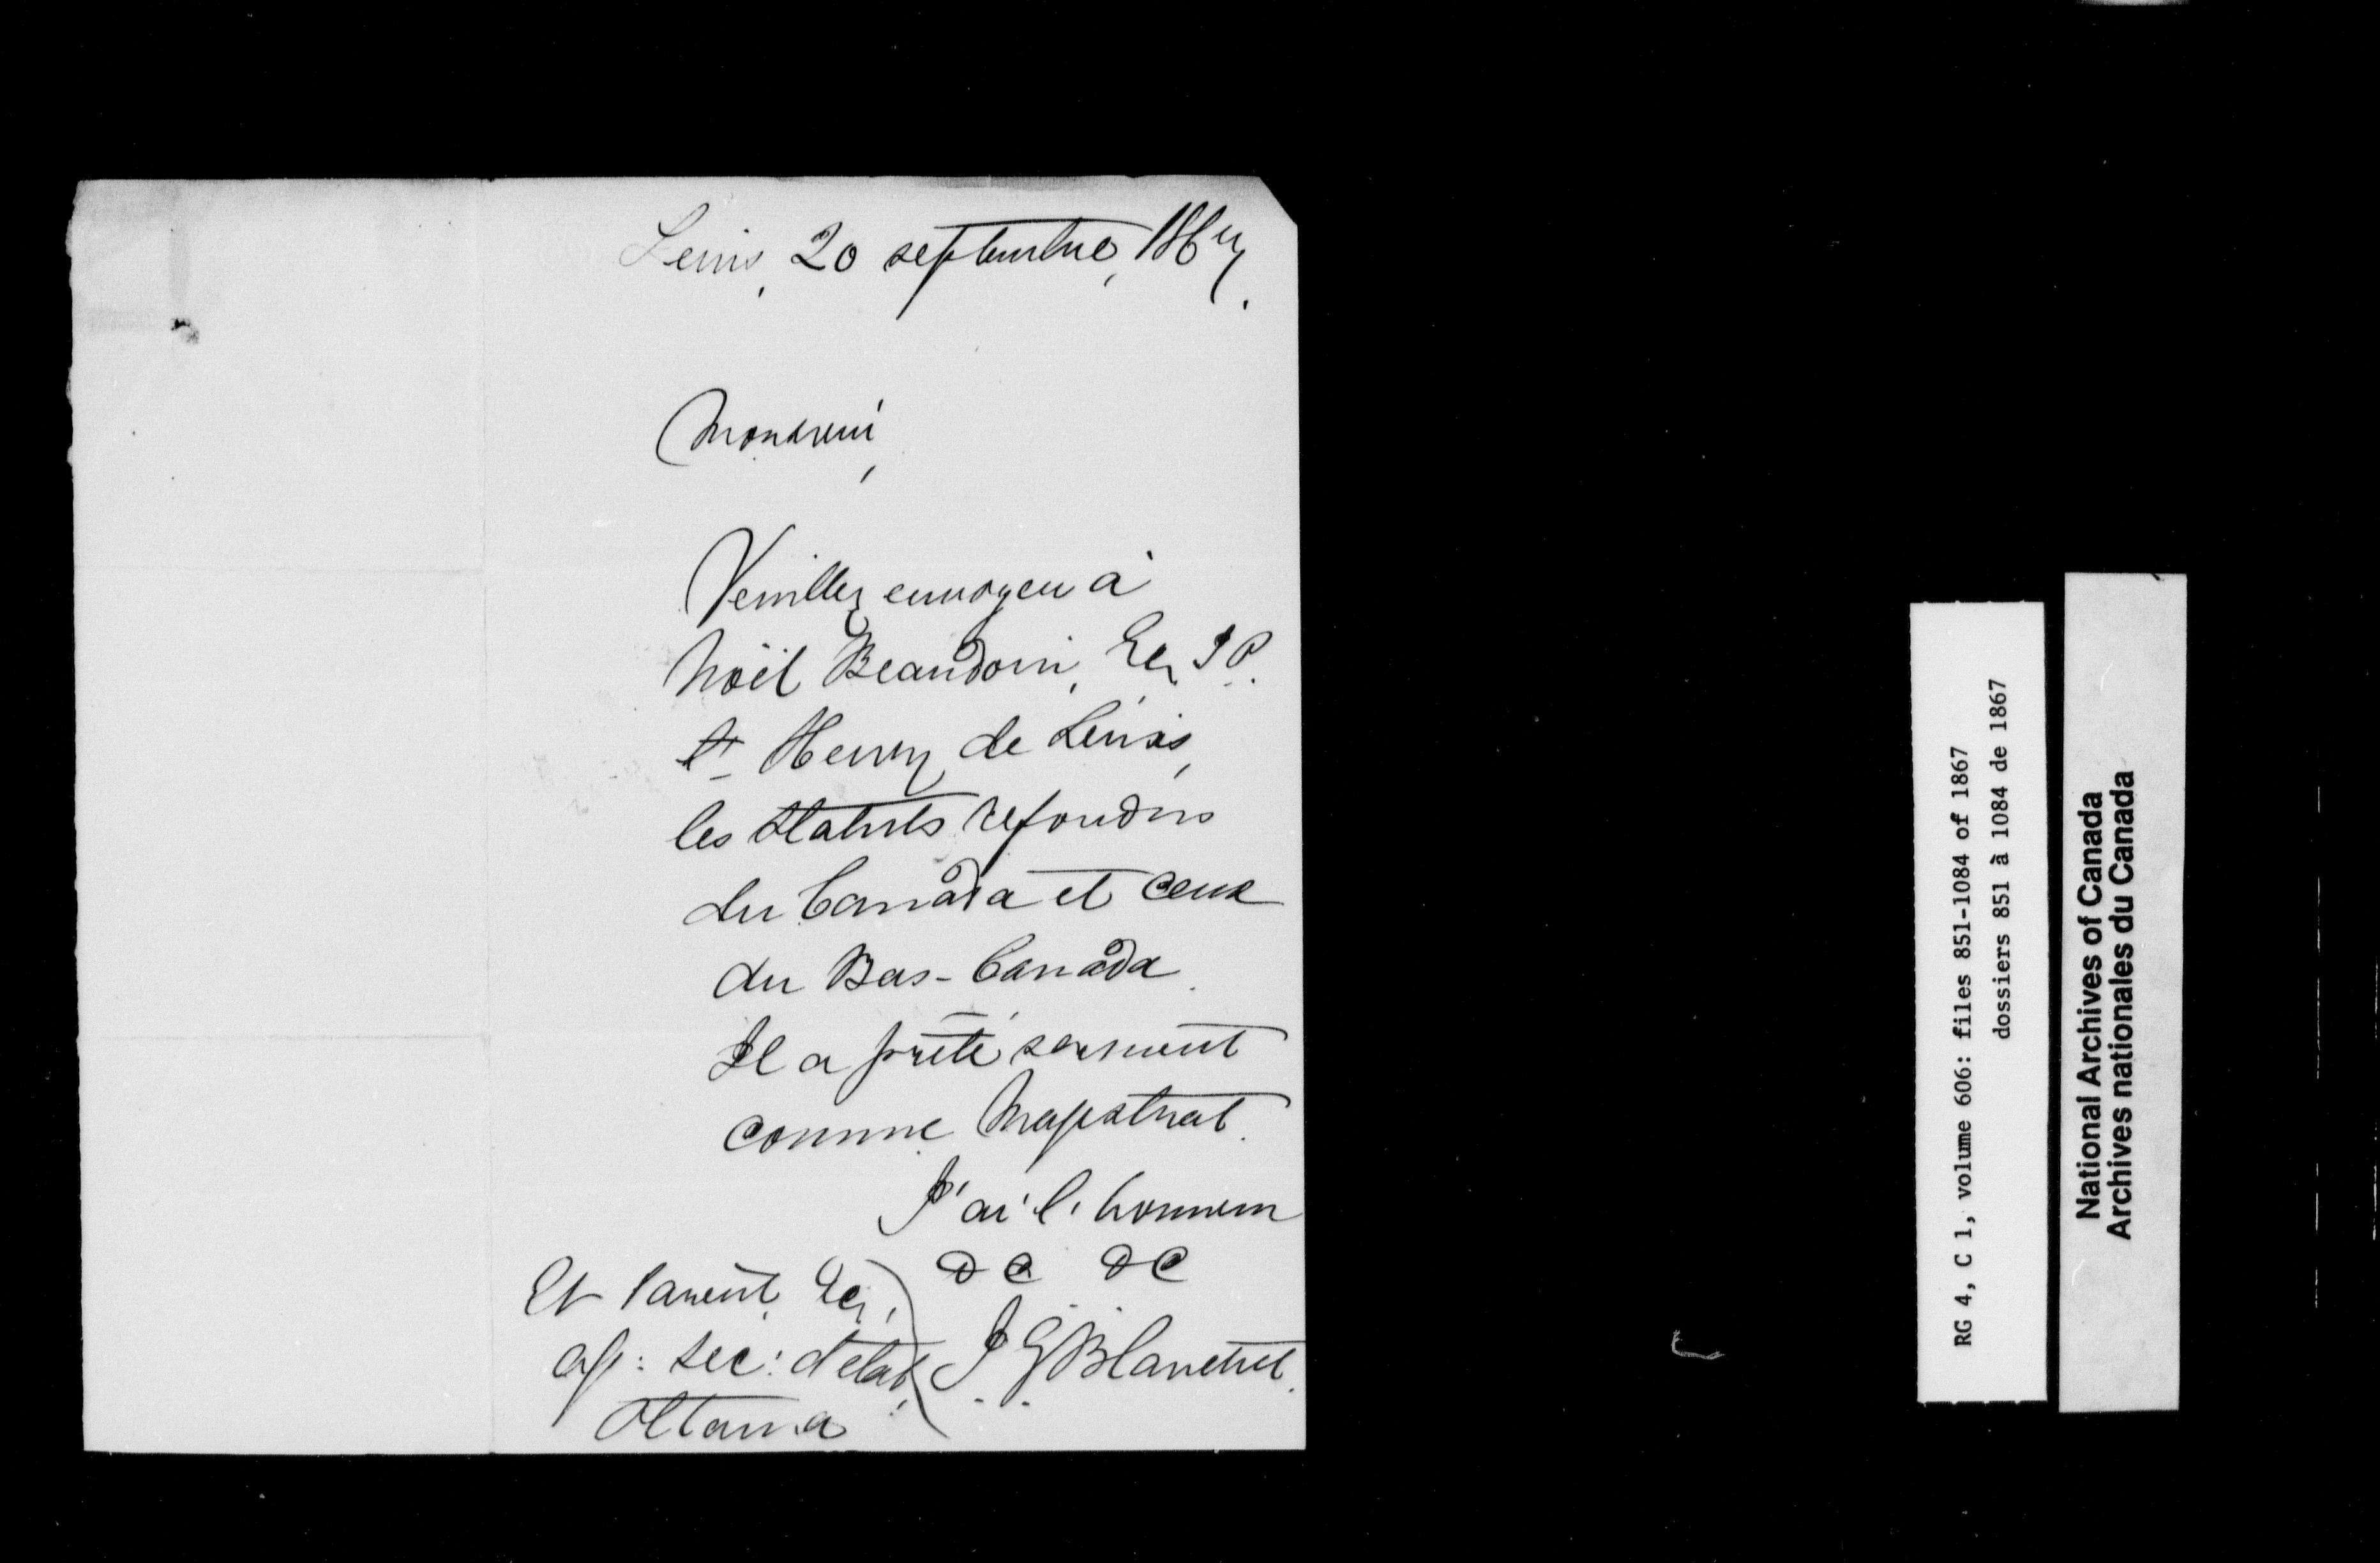 Levis, 20 septembre, 1867.
Monsieur,
Veuillez envoyer à
Noël Beaudoin, Ecr, J P.
St Henry de Levis,
les statuts refondus
du Canada et ceux
du Bas-Canada.
Il a prêté serment
comme Magistrat.
J'ai l'honneur
&c &c
J. G. Blanchet.
Et Parent, Ecr,
asst: sec: d'etat,
Ottawa
RG 4, C 1, volume 606: files 851-1084 of 1867
dossiers 851 à 1084 de 1867
National Archives of Canada
Archives nationales du Canada